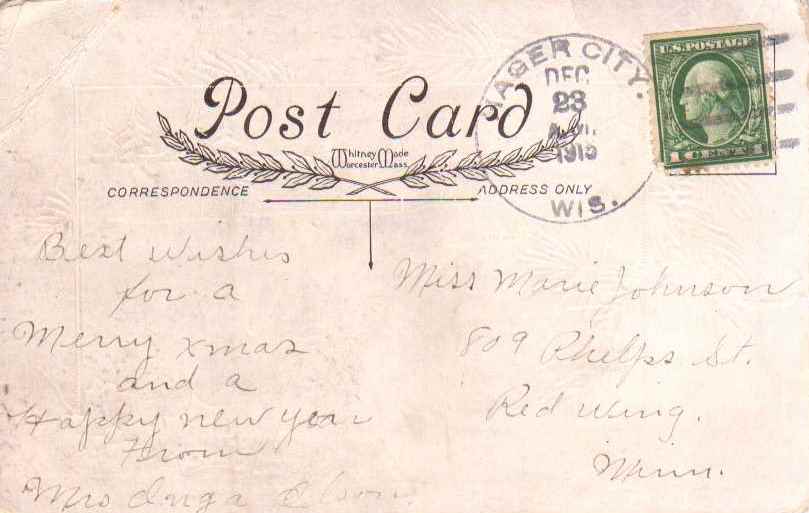 Post Card
Whitney Made
Worcester Mass.
CORRESPONDENCE
ADDRESS ONLY
HAGER CITY.
DEC
23
A.M.
WIS.
U.S. POSTAGE
1 CENT 1
Best wishes
for a
Merry xmas
and a
Happy new year
From
Mrs Inga Olson.
Miss Marie Johnson
809 Phelps St.
Red Wing.
Minn.